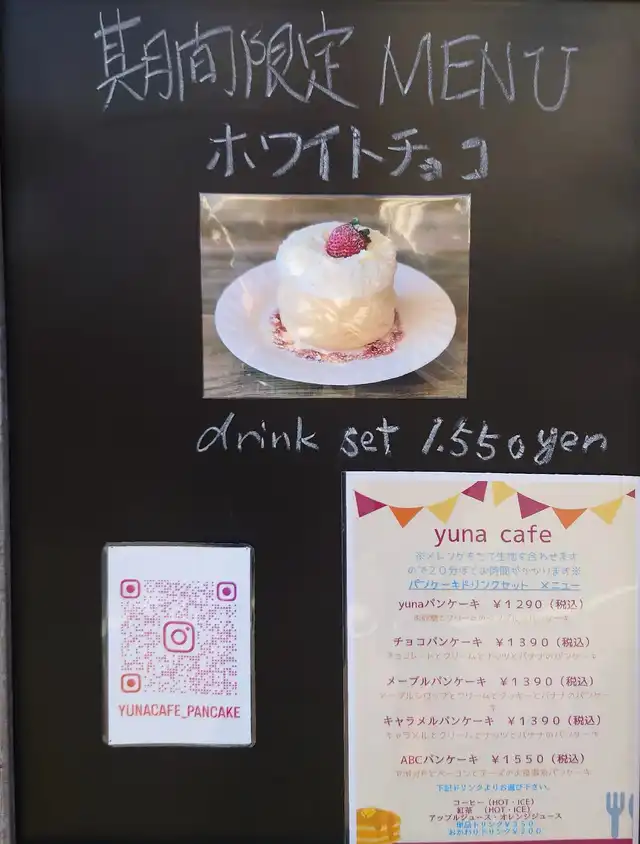 期間限定 MENU
ホワイトチョコ
drink set 1.550yen
yuna cafe
※メレンゲをたて生地を合わせます
ので20分ほどお時間がかかります※
パンケーキドリンクセット メニュー
yunaパンケーキ ¥1290(税込)
チョコパンケーキ ¥1390(税込)
チョコレートとクリームとナッツとバナナのパンケーキ
メープルパンケーキ ¥1390(税込)
メープルシロップとクリームとクッキーとバナナのパンケーキ
キャラメルパンケーキ ¥1390(税込)
キャラメルとクリームとナッツとバナナのパンケーキ
ABCパンケーキ ¥1550(税込)
下記ドリンクよりお選び下さい。
コーヒー(HOT・ICE)
紅茶 (HOT・ICE)
アップルジュース・オレンジジュース
単品ドリンク¥350
おかわりドリンク¥200
YUNACAFE_PANCAKE